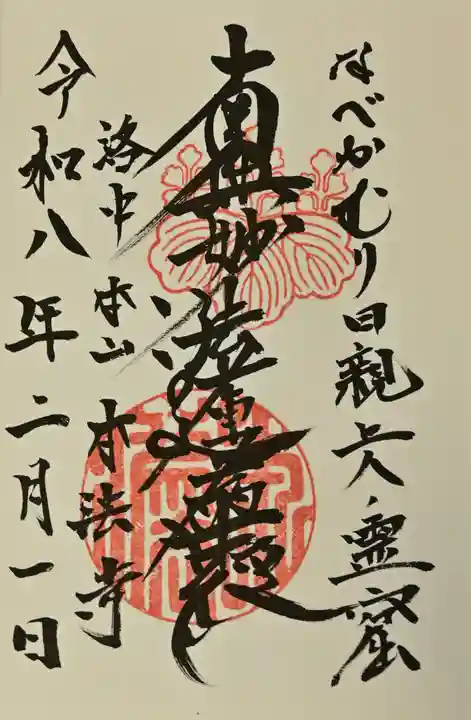 なべかむり日親上人霊窟
南無妙法蓮華経
洛中 本山 本法寺
令和八年二月一日